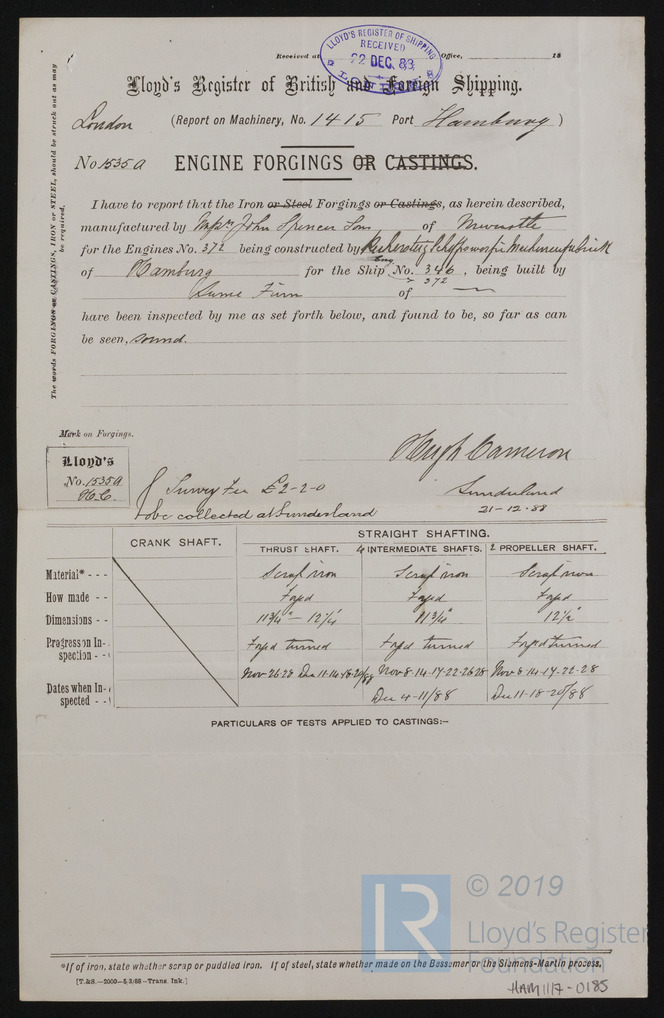 Received at Office, 18
LLOYD'S REGISTER OF SHIPPING
RECEIVED
22 DEC. 88
LONDON
Lloyd's Register of British and Foreign Shipping.
London (Report on Machinery, No. 1415 Port Hamburg )
No. 1535A ENGINE FORGINGS OR CASTINGS.
The words FORGINGS or CASTINGS, IRON or STEEL, should be struck out as may be required.
I have to report that the Iron or Steel Forgings or Castings, as herein described,
manufactured by Messrs John Spencer Sons of Newcastle
for the Engines No. 372 being constructed by
of Hamburg for the Ship Eng No. 346, being built by
372
Same Firm of
have been inspected by me as set forth below, and found to be, so far as can
be seen, sound.
Mark on Forgings.
Lloyd's
No. 1535A
H.C.
Hugh Cameron
Sunderland
21-12-88
Survey Fee £2-2-0
to be collected at Sunderland
CRANK SHAFT. STRAIGHT SHAFTING.
THRUST SHAFT. 4 INTERMEDIATE SHAFTS. 2 PROPELLER SHAFT.
Material* - - - Scrap iron Scrap iron Scrap iron
How made - - Forged Forged Forged
Dimensions - - 11 3/4" - 12 1/4 11 3/4" 12 1/2"
Progress on Inspection - - Forged turned Forged turned Forged turned
Dates when Inspected - - Nov 26-28 Dec 11-14-18-20/88 Nov 8-14-17-22-26-28 Nov 8-14-17-22-28
Dec 4-11/88 Dec 11-18-20/88
PARTICULARS OF TESTS APPLIED TO CASTINGS:—
LR
© 2019
Lloyd's Register
Foundation
*If of iron, state whether scrap or puddled iron. If of steel, state whether made on the Bessemer or the Siemens-Martin process.
[T.&S.—2000—5/3/88—Trans. Ink.]
HAM1117-0185